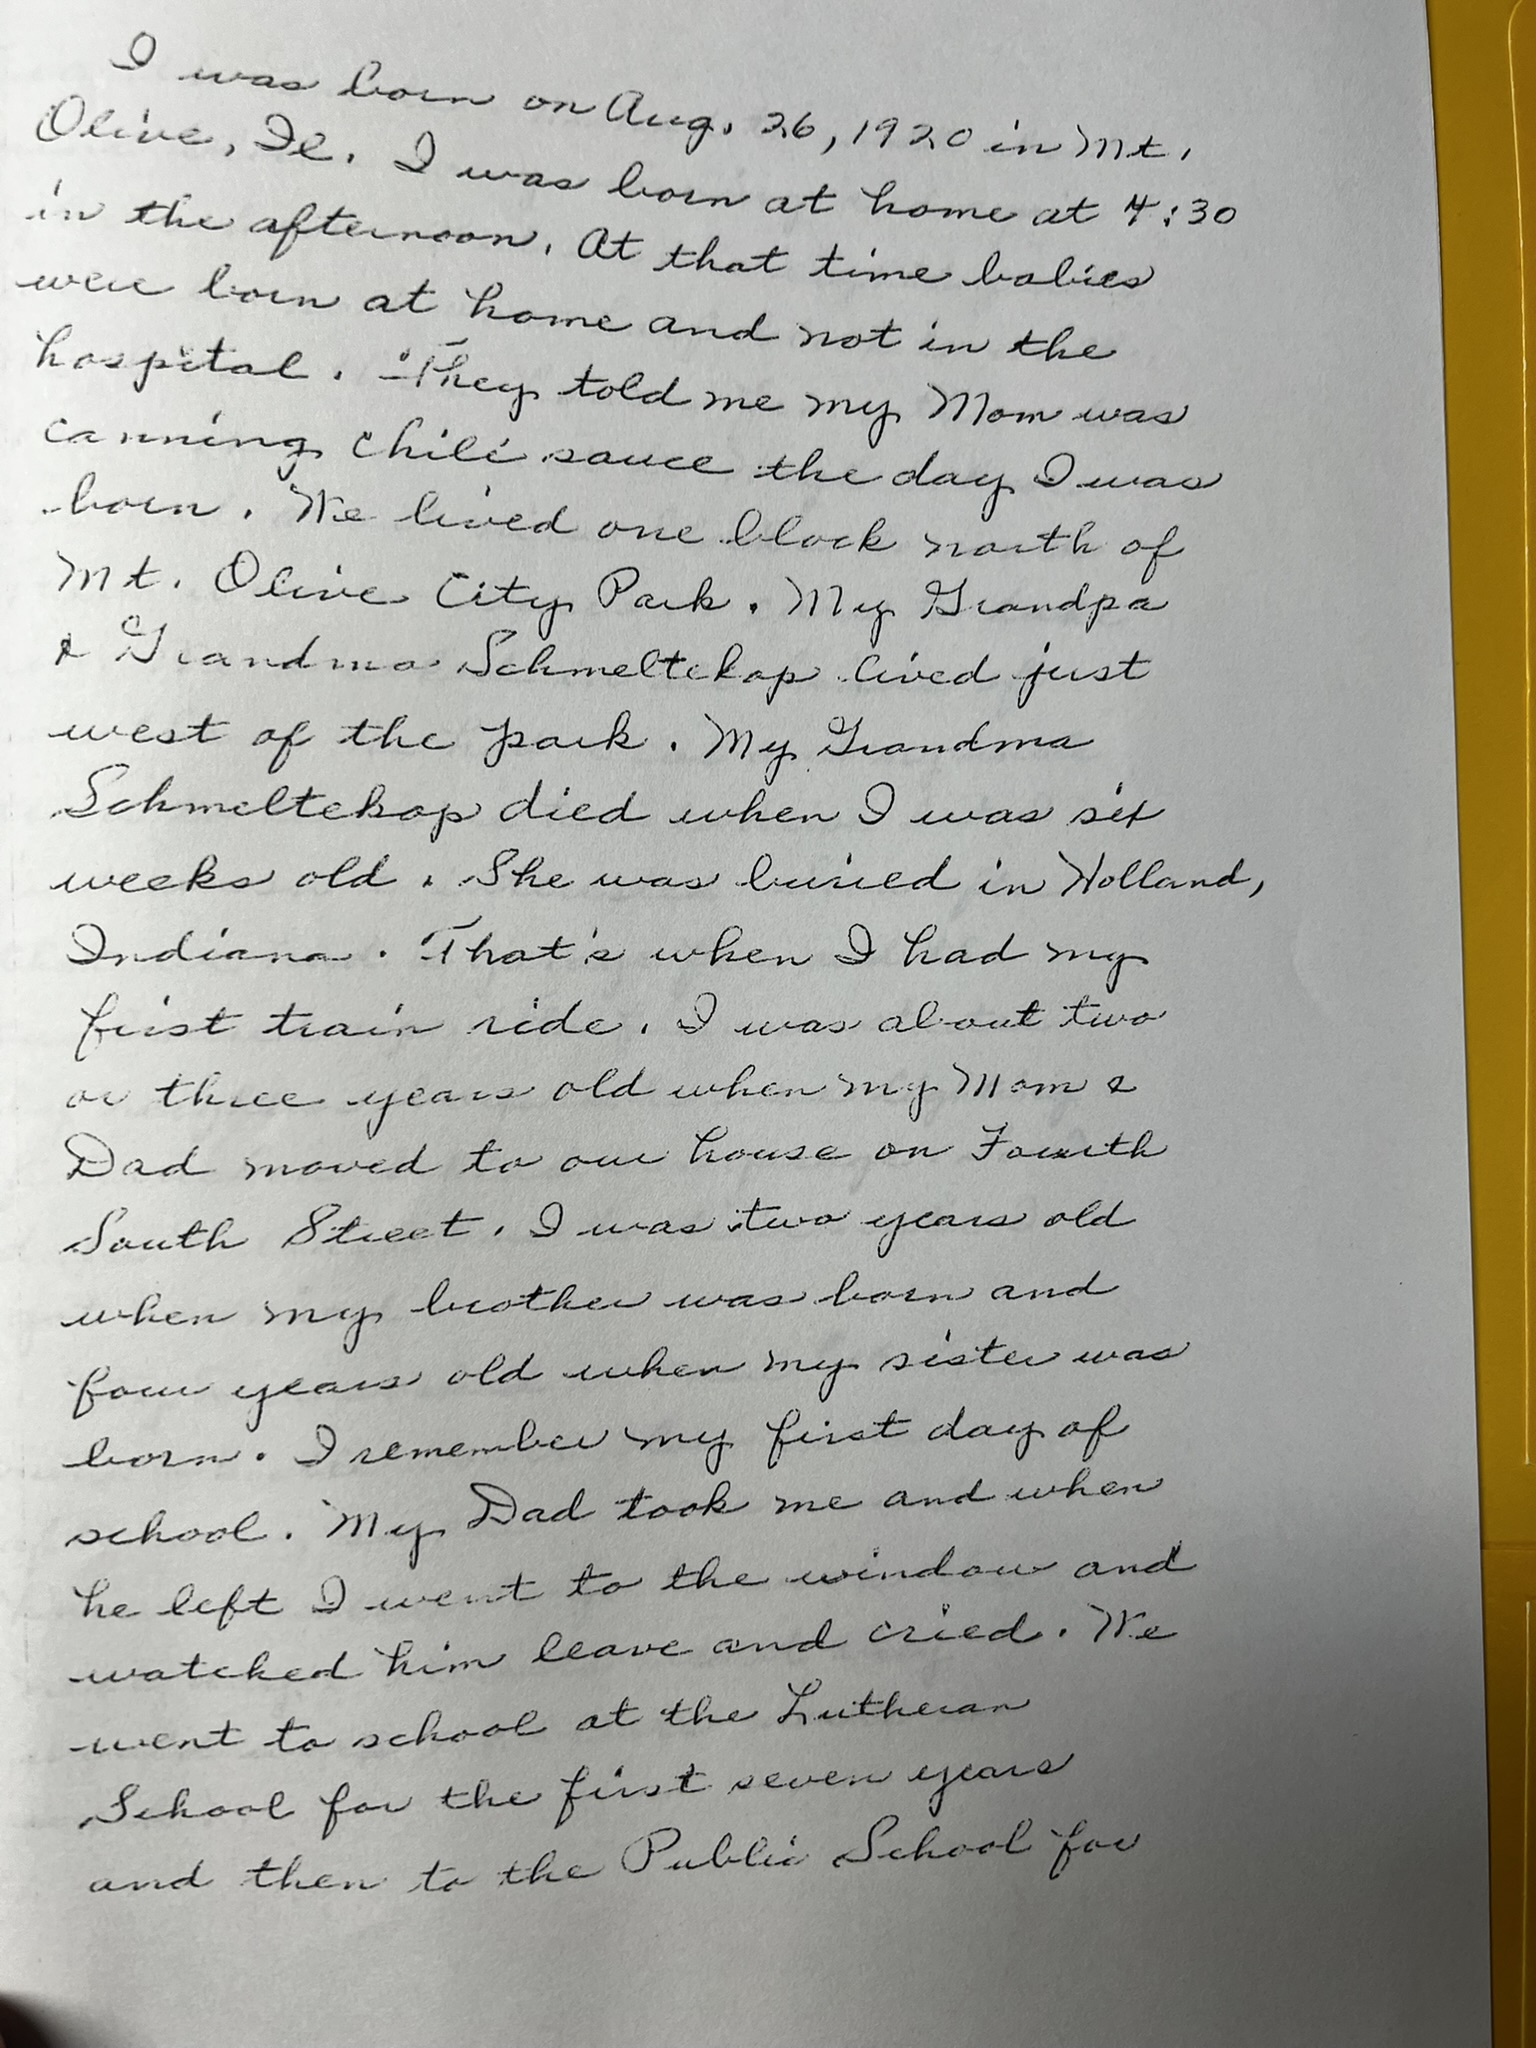 I was born on Aug. 26, 1920 in Mt.
Olive, Il. I was born at home at 4:30
in the afternoon. At that time babies
were born at home and not in the
hospital. They told me my Mom was
canning chili sauce the day I was
born. We lived one block north of
Mt. Olive City Park. My Grandpa
& Grandma Schmeltekop lived just
west of the park. My Grandma
Schmeltekop died when I was six
weeks old. She was buried in Holland,
Indiana. That's when I had my
first train ride. I was about two
or three years old when my Mom &
Dad moved to our house on Fourth
South Street. I was two years old
when my brother was born and
four years old when my sister was
born. I remember my first day of
school. My Dad took me and when
he left I went to the window and
watched him leave and cried. We
went to school at the Lutheran
School for the first seven years
and then to the Public School for